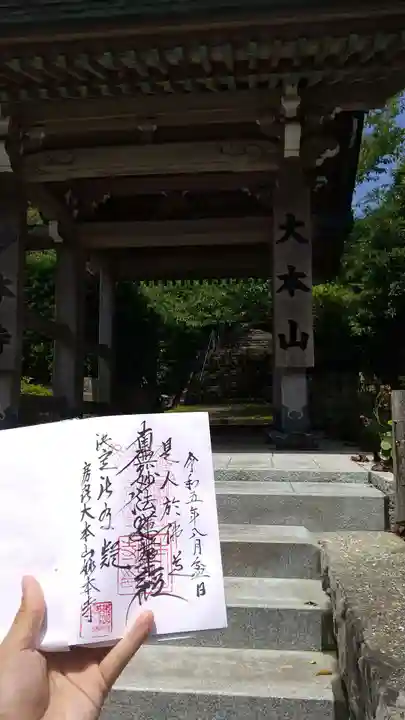 大本山
本寺
令和五年八月吉日
是人於佛道
南無妙法蓮華経
決定無有疑
房州大本山妙本寺